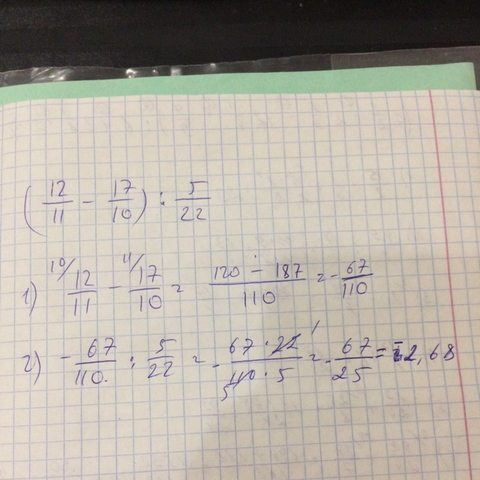 (12/11 - 17/10) : 5/22
1) 10/ 12/11 - 11/ 17/10 = (120 - 187)/110 = -67/110
2) -67/110 : 5/22 = -(67 · 22 1)/(5 110 · 5) = -67/25 = -2,68